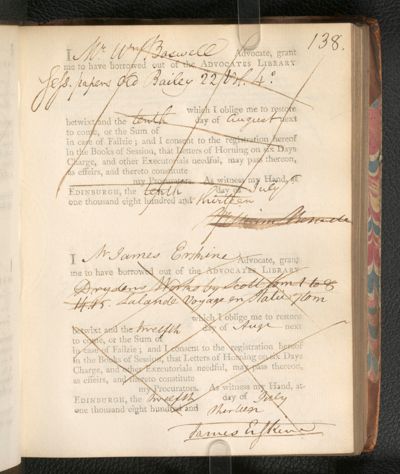 138.
I Mr Wm. Boswell Advocate, grant
me to have borrowed out of the ADVOCATES LIBRARY
Sess. papers Old Bailey 22 Vol. 4o
which I oblige me to restore
betwixt and the tenth day of August next
to come, or the Sum of
in case of Failzie; and I consent to the registration hereof
in the Books of Session, that Letters of Horning on six Days
Charge, and other Executorials needful, may pass thereon,
as effeirs, and thereto constitute
my Procurators. As witness my Hand, at
EDINBURGH, the tenth day of July
one thousand eight hundred and thirteen
I Mr James Erskine Advocate, grant
me to have borrowed out of the ADVOCATES LIBRARY
Drydens Works by Scott tom 1 to 8
14.15. Lalande Voyage en Italie 7 tom
which I oblige me to restore
betwixt and the twelfth day of Augt. next
to come, or the Sum of
in case of Failzie; and I consent to the registration hereof
in the Books of Session, that Letters of Horning on six Days
Charge, and other Executorials needful, may pass thereon,
as effeirs, and thereto constitute
my Procurators. As witness my Hand, at
EDINBURGH, the twelfth day of July
one thousand eight hundred and thirteen
James Erskine